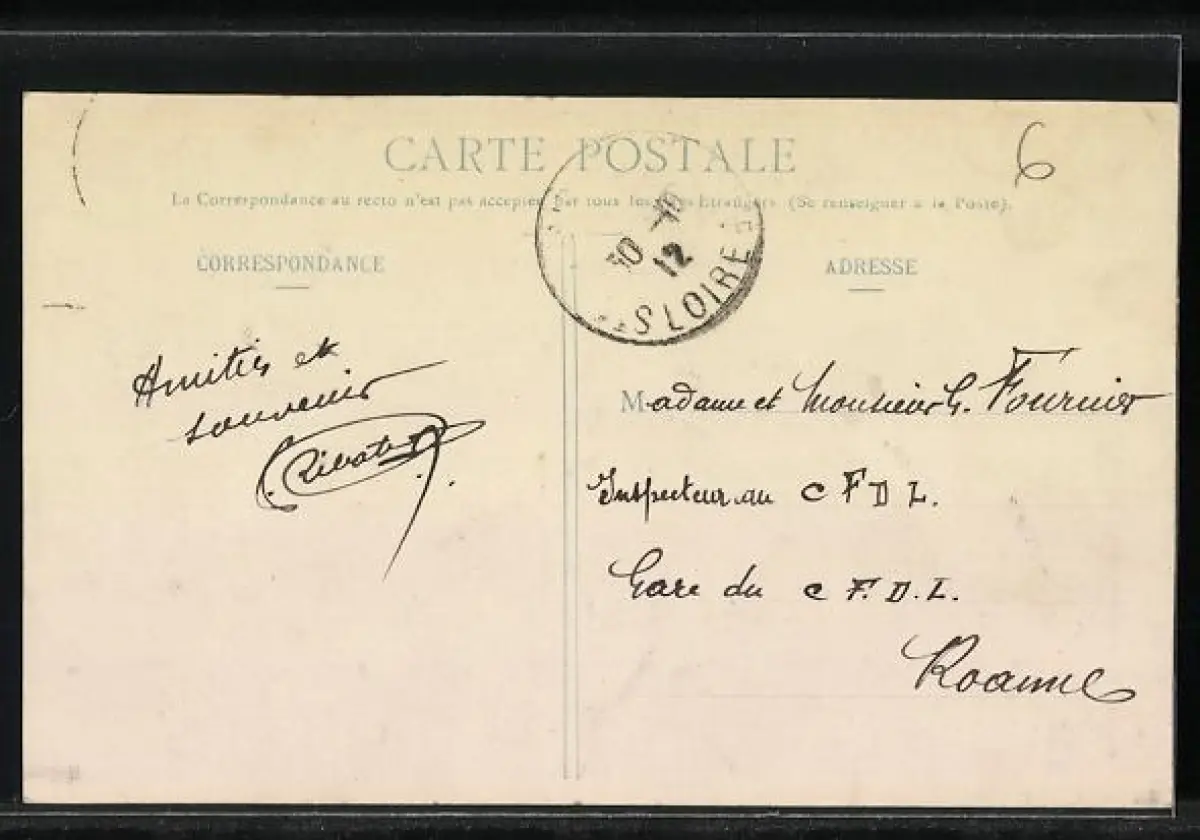 CARTE POSTALE
6
La Correspondance au recto n'est pas acceptée par tous les Pays Etrangers (Se renseigner à la Poste).
10 -10
12
LOIRE
CORRESPONDANCE
ADRESSE
Amitiés et
souvenir
Madame et Monsieur G. Fournier
Inspecteur au C F D L.
Gare du C F. D. L.
Roanne